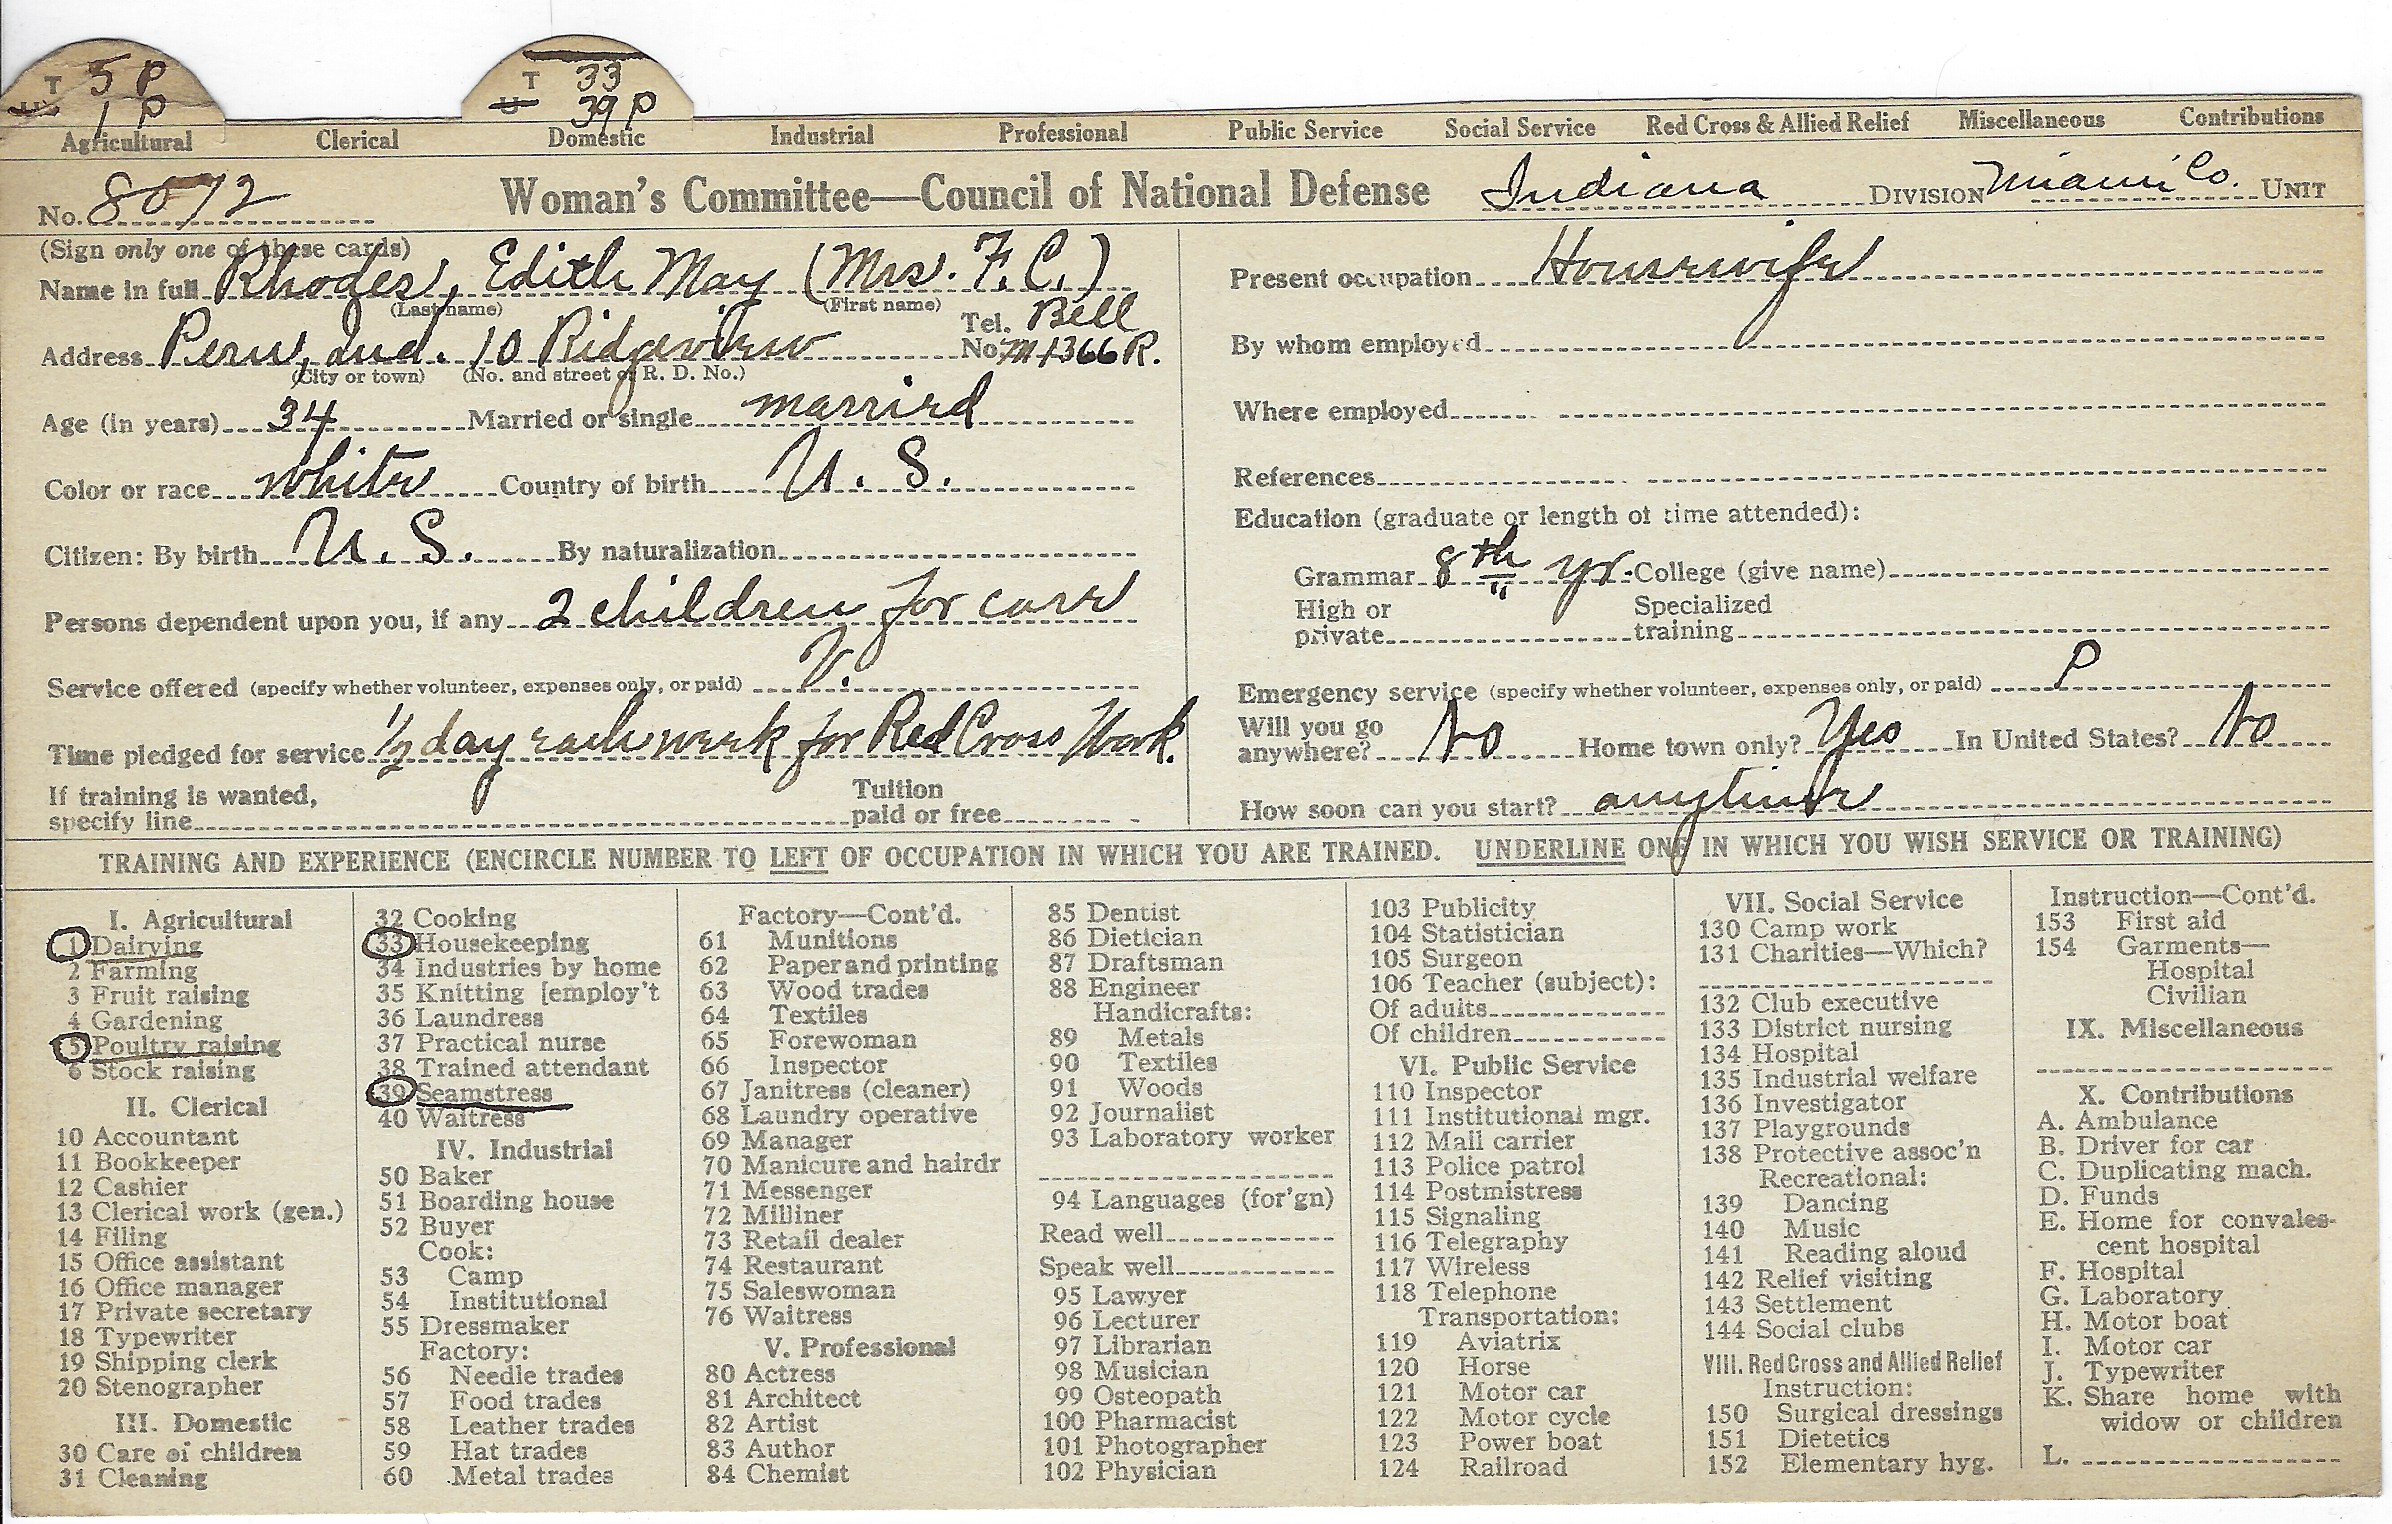 T 5 P
U 1 P
T 33
U 39 P
Agricultural Clerical Domestic Industrial Professional Public Service Social Service Red Cross & Allied Relief Miscellaneous Contributions
No. 8072 Woman's Committee—Council of National Defense Indiana DIVISION Miami Co. UNIT
(Sign only one of these cards)
Name in full Rhodes, Edith May (Mrs. F. C.)
(Last name) (First name)
Address Peru, Ind. 10 Ridgeview Tel. No. Bell M 1366 R.
(City or town) (No. and street or R. D. No.)
Age (in years) 34 Married or single married
Color or race white Country of birth U. S.
Citizen: By birth U. S. By naturalization
Persons dependent upon you, if any 2 children for care
Service offered (specify whether volunteer, expenses only, or paid) V.
Time pledged for service 1/2 day each week for Red Cross Work.
If training is wanted, specify line Tuition paid or free
Present occupation Housewife
By whom employed
Where employed
References
Education (graduate or length of time attended):
Grammar 8th yr. College (give name)
High or private Specialized training
Emergency service (specify whether volunteer, expenses only, or paid) P
Will you go anywhere? No Home town only? Yes In United States? No
How soon can you start? anytime
TRAINING AND EXPERIENCE (ENCIRCLE NUMBER TO LEFT OF OCCUPATION IN WHICH YOU ARE TRAINED. UNDERLINE ONE IN WHICH YOU WISH SERVICE OR TRAINING)
I. Agricultural
1 Dairying
2 Farming
3 Fruit raising
4 Gardening
5 Poultry raising
6 Stock raising
II. Clerical
10 Accountant
11 Bookkeeper
12 Cashier
13 Clerical work (gen.)
14 Filing
15 Office assistant
16 Office manager
17 Private secretary
18 Typewriter
19 Shipping clerk
20 Stenographer
III. Domestic
30 Care of children
31 Cleaning
32 Cooking
33 Housekeeping
34 Industries by home
35 Knitting [employ't
36 Laundress
37 Practical nurse
38 Trained attendant
39 Seamstress
40 Waitress
IV. Industrial
50 Baker
51 Boarding house
52 Buyer
Cook:
53 Camp
54 Institutional
55 Dressmaker
Factory:
56 Needle trades
57 Food trades
58 Leather trades
59 Hat trades
60 Metal trades
Factory—Cont'd.
61 Munitions
62 Paper and printing
63 Wood trades
64 Textiles
65 Forewoman
66 Inspector
67 Janitress (cleaner)
68 Laundry operative
69 Manager
70 Manicure and hairdr
71 Messenger
72 Milliner
73 Retail dealer
74 Restaurant
75 Saleswoman
76 Waitress
V. Professional
80 Actress
81 Architect
82 Artist
83 Author
84 Chemist
85 Dentist
86 Dietician
87 Draftsman
88 Engineer
Handicrafts:
89 Metals
90 Textiles
91 Woods
92 Journalist
93 Laboratory worker
94 Languages (for'gn)
Read well
Speak well
95 Lawyer
96 Lecturer
97 Librarian
98 Musician
99 Osteopath
100 Pharmacist
101 Photographer
102 Physician
103 Publicity
104 Statistician
105 Surgeon
106 Teacher (subject):
Of adults
Of children
VI. Public Service
110 Inspector
111 Institutional mgr.
112 Mail carrier
113 Police patrol
114 Postmistress
115 Signaling
116 Telegraphy
117 Wireless
118 Telephone
Transportation:
119 Aviatrix
120 Horse
121 Motor car
122 Motor cycle
123 Power boat
124 Railroad
VII. Social Service
130 Camp work
131 Charities—Which?
132 Club executive
133 District nursing
134 Hospital
135 Industrial welfare
136 Investigator
137 Playgrounds
138 Protective assoc'n
Recreational:
139 Dancing
140 Music
141 Reading aloud
142 Relief visiting
143 Settlement
144 Social clubs
VIII. Red Cross and Allied Relief
Instruction:
150 Surgical dressings
151 Dietetics
152 Elementary hyg.
Instruction—Cont'd.
153 First aid
154 Garments—
Hospital
Civilian
IX. Miscellaneous
X. Contributions
A. Ambulance
B. Driver for car
C. Duplicating mach.
D. Funds
E. Home for convales-
cent hospital
F. Hospital
G. Laboratory
H. Motor boat
I. Motor car
J. Typewriter
K. Share home with
widow or children
L.